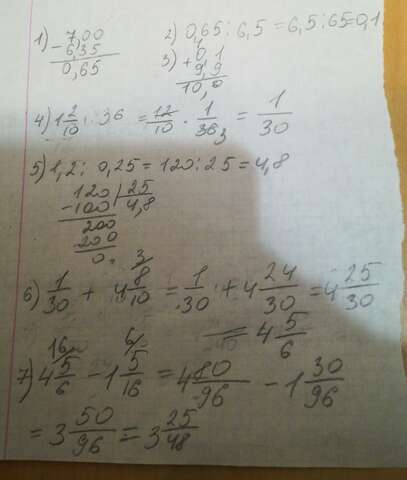 1) 7,00
- 6,35
0,65
2) 0,65 : 6,5 = 6,5 : 65 = 0,1
3) + 0,1
9,9
10,0
4) 1 2/10 : 36 = 12/10 · 1/36 3 = 1/30
5) 1,2 : 0,25 = 120 : 25 = 4,8
120 | 25
- 100 | 4,8
200
- 200
0
6) 1/30 + 4 8/10 3/ = 1/30 + 4 24/30 = 4 25/30
= 4 5/6
7) 4 5/6 16/ - 1 5/16 6/ = 4 80/96 - 1 30/96
= 3 50/96 = 3 25/48